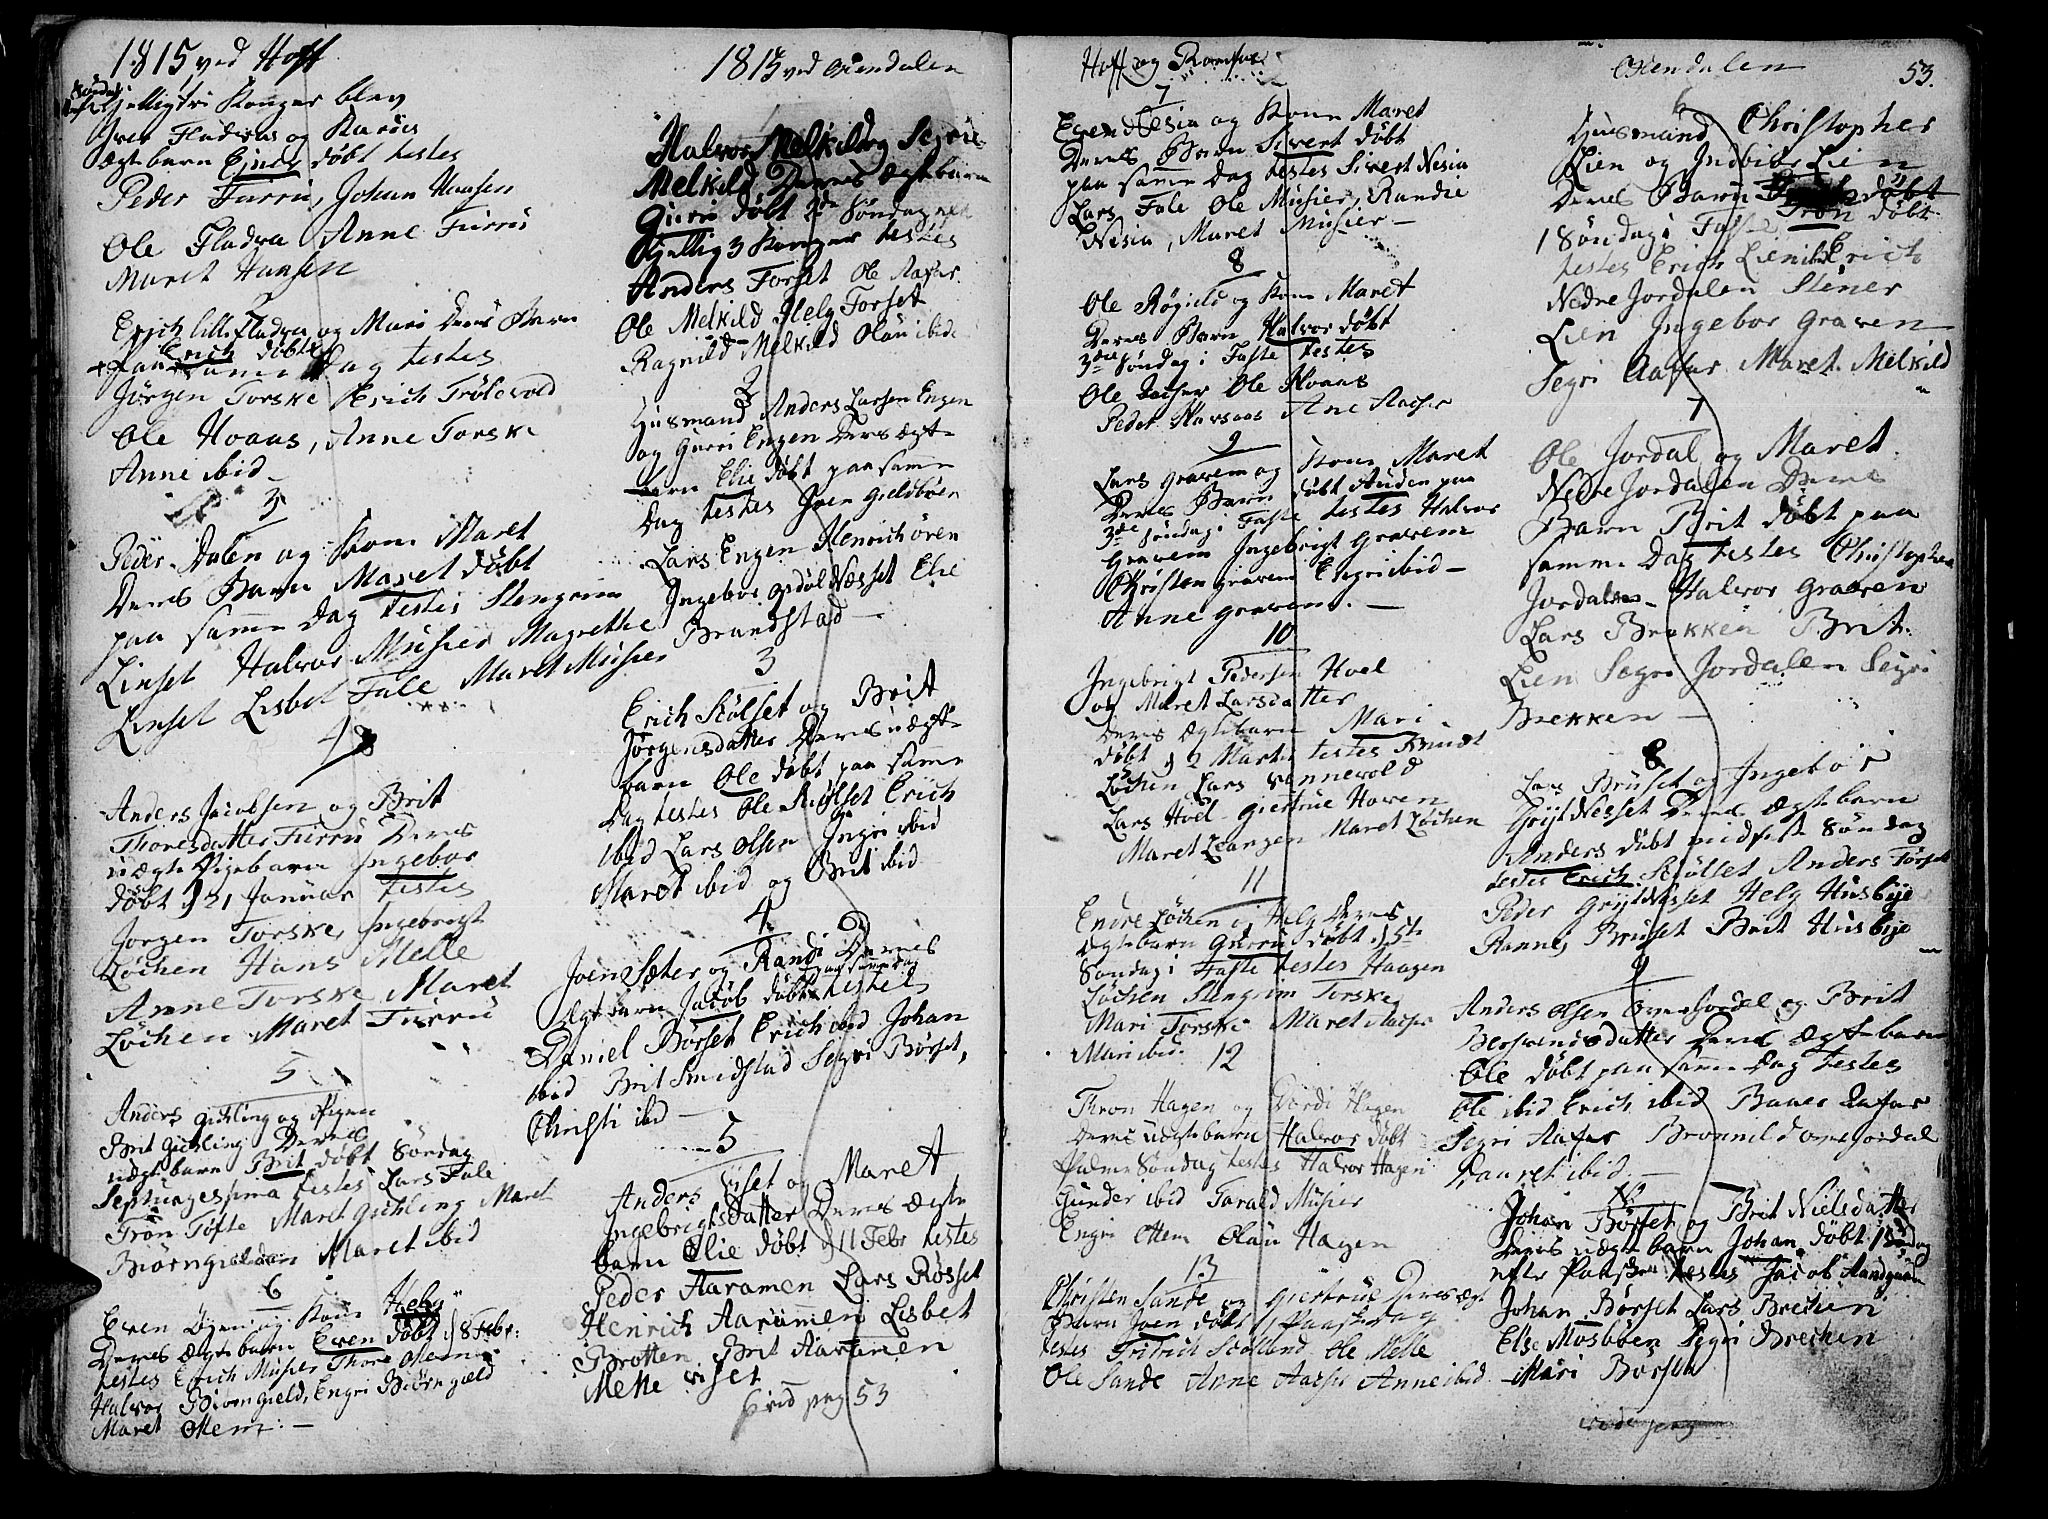 1815 ved Hoff
Hellig tri Konger blev
Iver Fladvas og Karies
ægtebarn døbt testes
Peder Furru, Johan Hansen
Ole Fladva Anne Furru
Maret Hansen
Erich lille Fladva og Mari Deres Barn
Erich døbt
paa samme Dag testes
Jørgen Torske Erich Trölevold
Ole Hoaas, Anne Torske
Anne ibid
3
Peder Dalen og Kone Maret
Deres Barn Maret døbt
paa samme Dag testes Stengrim
Linset Halvor Musier Magrethe
Linset Lisbet Fale Maret Musier
4
Anders Jacobsen og Brit
Thoresdatter Furru Deres
uægte Pigebarn Ingebor
døbt d 21 Januar testes
Jørgen Torske, Ingebrigt
Løchen Hans Melle
Anne Torske, Maret
Løchen Maret Furru
5
Anders Gichling og Pigen
Brit Gichling Deres
uægtebarn Brit døbt Søndag
Septuagessima testes Lars Fale
Tron Tofte Maret Gichling Maret
Biørngielden Maret ibid
6
Even og Kone Helg
Deres Ægtebarn Even døbt d 8 Febr:
testes Erich Musier Thore Ottem
Halvor Biørngield, Engri Biørngield
Maret Ottem
1815 ved Øxendalen
Halvor Melkild og Segrie
Melkild Deres Ægtebarn
Guru døbt 2de Søndag
Hellig 3 Konger testes
Anders Forset Ole Aafar
Ole Melkild Helg Forset
Ragnild Melkild Olau ibid
2
Husmand Anders Larsen Engen
og Guru Engen Deres ægte
barn Elie døbt paa samme
Dag testes Joen Gieldbøen
Lars Engen Henrich Ören
Ingebor Opdøl Næsset Elie
Brandstad
3
Erich Skølset og Brit
Jørgensdatter Deres uægte
barn Ole døbt paa samme
Dag testes Ole Skølset Erich
ibid Lars Olsen Ingri ibid
Maret ibid og Brit ibid
4
Joen Sæter og Randi Deres
paa samme Dag
Ægtebarn Jacob døbt testes
Daniel Børset Erich ibid Johan
ibid Brit Smidstad Segri Børset,
Christi ibid
5
Anders Viset og Maret
Ingebrigtsdatter Deres Ægte
barn Elie døbt d 11 Febr testes
Peder Aaramen Lars Røsset
Henrich Aarømen Lisbet
Brotten Brit Aaramen
Mette Viset
vid pag 53
Hoff og Romfoe
7
Even Nesia og Kone Maret
Deres Barn Sivert døbt
paa samme Dag testes Sivert Nesia
Lars Fale Ole Musier, Randie
Nesia, Maret Musier
8
Ole Røgield og Kone Maret
Deres Barn Halvor døbt
3die Søndag i Faste testes
Ole Ole Hoaas
Peder Horsaas Ane
9
Lars Gravem og Kone Maret
Deres Barn døbt Auden paa
3de Søndag i Faste testes Halvor
Gravem Ingebrigt Gravem
Christen Gravem Engri ibid
Anne Gravem.
10
Ingebrigt Pedersen Hoel
og Maret Larsdatter
Deres Ægtebarn Mari
døbt d 2 Martii testes Knudt
Løchen Lars Vennevold
Lars Hoel Giertrue Hoven
Maret Langen Maret Løchen
11
Endre Løchen og Helg Deres
Ægtebarn Gurru døbt d 5te
Søndag i Faste testes Haagen
Løchen Stengrim Torske
Mari Torske Maret
Mari ibid.
12
Thron Hagen og Dordi Hagen
Deres uægtebarn Halvor døbt
Palme Søndag testes Halvor Hagen
Gunder ibid Tarald Musier
Engri Ottem Olau Hagen
13
Christen Sande og Giertrue Deres ægte
Barn Joen døbt 1 Paaskedag
testes Fridrich Ole Melle
Ole Sande Anne Anne ibid
Øxendalen
53.
6
Husmand Christopher
Lien og Indbie Lien
Deres Barn døbt
Tron døbt
1 Søndag i Faste
testes Erich Lien Erich
Nedre Jordalen Stener
Lien Ingebor Graven
Segri Aafar Maret Melkild
7
Ole Jordal og Maret
Nedre Jordalen Deres
Barn Brit døbt paa
samme Dag testes Christopher
Jordalen Halvor Graven
Lars Brekken Brit
Lien Segri Jordalen Segri
Brekken
8
Lars Bruset og Ingebor
Gryt Nesset Deres Ægtebarn
Anders døbt midfaste Søndag
testes Erich Skøllet Anders Forset
Peder Grytnesset Helg Husbye
Ranne Bruset Brit Husbye
9
Anders Olsen Ovnejordal og Brit
Bersvendsdatter Deres Ægtebarn
Ole døbt paa samme Dag testes
Ole ibid Erich ibid Aafar
Segri Aafar Bronnild Ovnejordal
Maret ibid
10
Johan Børset og Brit Nielsdatter
Deres uægtebarn Johan døbt 1 Søndag
efter Paaske testes Jacob
Johan Børset Lars Brechen
Else Mosbøen Segri Brechen
Mari Børset